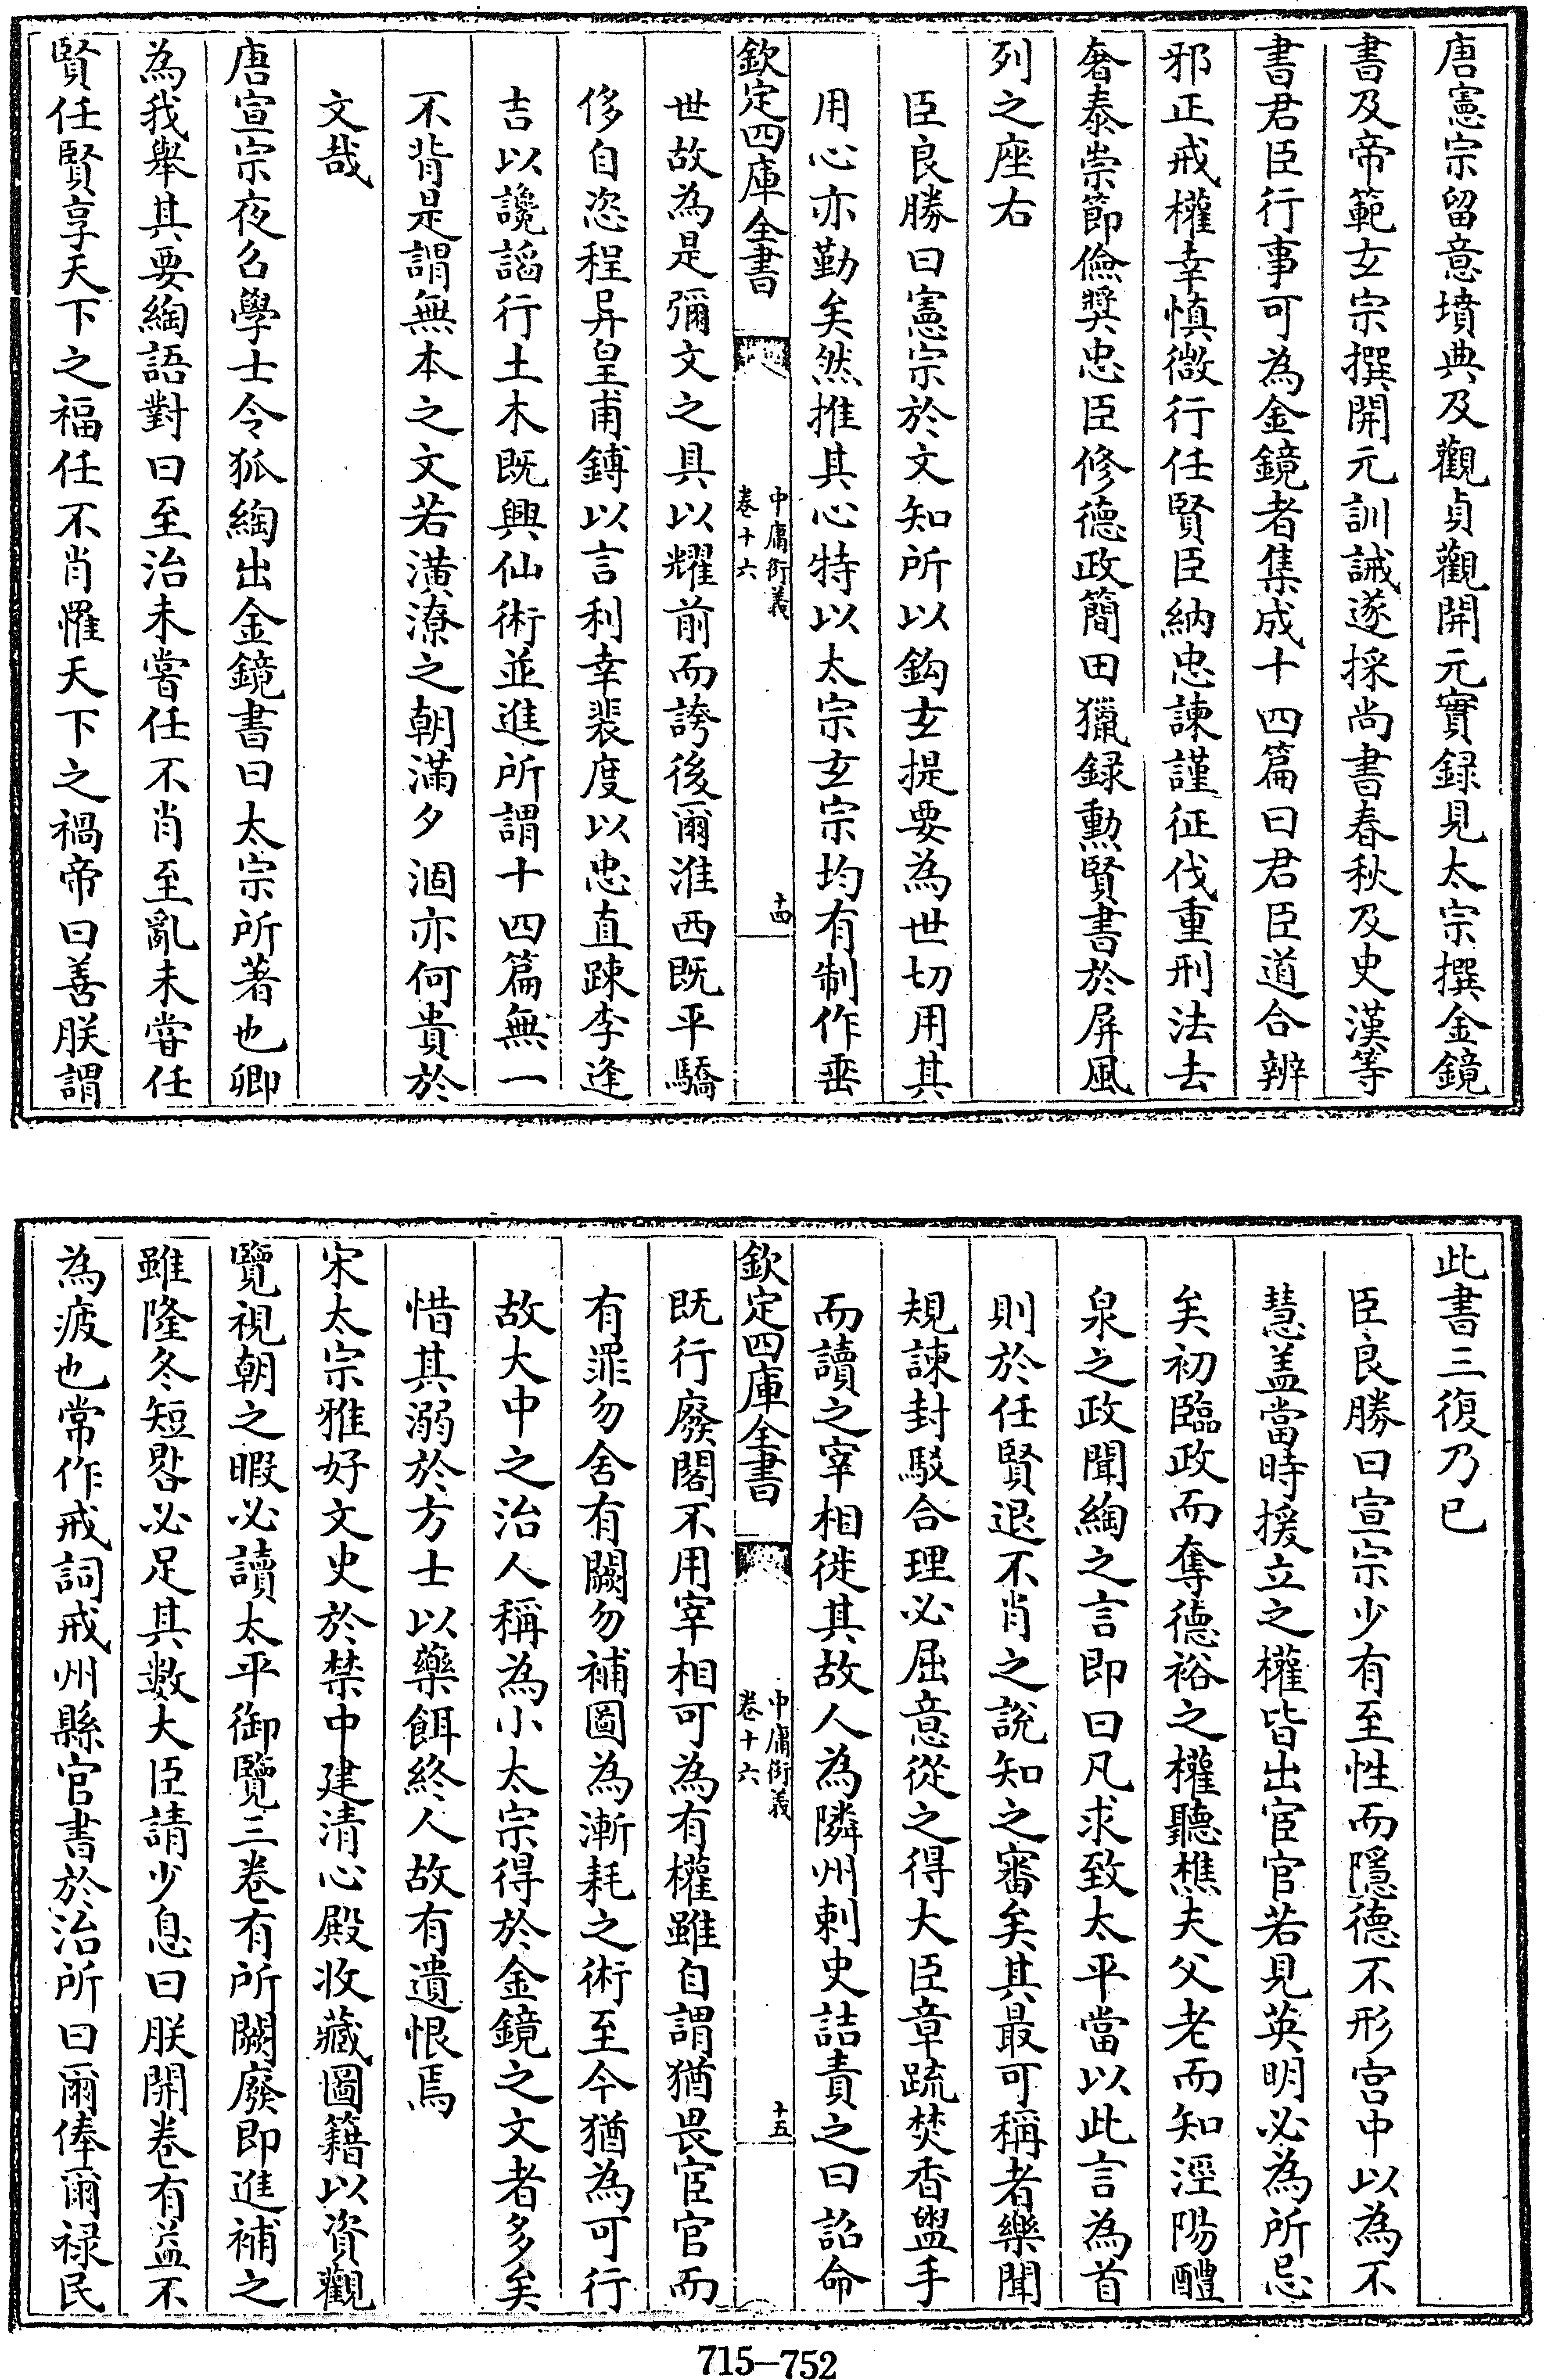 唐憲宗留意墳典及觀貞觀開元實録見太宗撰金鏡
書及帝範玄宗撰開元訓誡遂採尚書春秋及史漢等
書君臣行事可為金鏡者集成十四篇曰君臣道合辨
邪正戒權幸慎微行任賢臣納忠諫謹征伐重刑法去
奢泰崇節儉奬忠臣修德政簡田獵録勲賢書於屏風
列之座右
臣良勝曰憲宗於文知所以鈎玄提要為世切用其
用心亦勤矣然推其心特以太宗玄宗均有制作垂
欽定四庫全書
中庸衍義
卷十六
十四
世故為是彌文之具以耀前而誇後爾淮西既平驕
侈自恣程异皇甫鎛以言利幸裴度以忠直踈李逢
吉以讒謟行土木既興仙術並進所謂十四篇無一
不背是謂無本之文若潢潦之朝滿夕涸亦何貴於
文哉
唐宣宗夜召學士令狐綯出金鏡書曰太宗所著也卿
為我舉其要綯語對曰至治未嘗任不肖至亂未嘗任
賢任賢享天下之福任不肖罹天下之禍帝曰善朕謂
此書三復乃已
臣良勝曰宣宗少有至性而隱德不形宫中以為不
慧盖當時援立之權皆出宦官若見英明必為所忌
矣初臨政而奪德裕之權聽樵夫父老而知涇陽醴
泉之政聞綯之言即曰凡求致太平當以此言為首
則於任賢退不肖之說知之審矣其最可稱者樂聞
規諫封駁合理必屈意從之得大臣章疏焚香盥手
而讀之宰相徙其故人為隣州刺史詰責之曰詔命
欽定四庫全書
中庸衍義
卷十六
十五
既行廢閣不用宰相可為有權雖自謂猶畏宦官而
有罪勿舍有闕勿補圖為漸耗之術至今猶為可行
故大中之治人稱為小太宗得於金鏡之文者多矣
惜其溺於方士以藥餌終人故有遺恨焉
宋太宗雅好文史於禁中建清心殿收藏圖籍以資觀
覽視朝之暇必讀太平御覽三卷有所闕廢即進補之
雖隆冬短晷必足其數大臣請少息曰朕開卷有益不
為疲也常作戒詞戒州縣官書於治所曰爾俸爾禄民
715–752